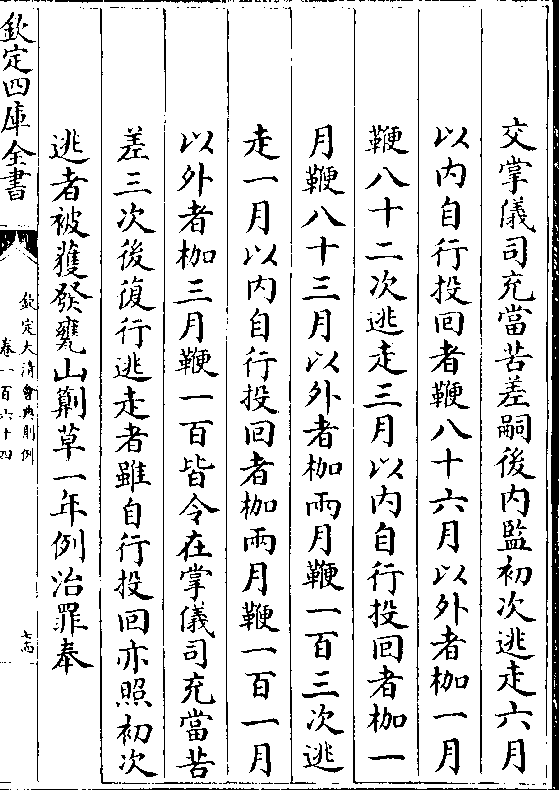 交掌儀司充當苦差嗣後内監初次逃走六月
以内自行投回者鞭八十六月以外者枷一月
鞭八十二次逃走三月以内自行投回者枷一
月鞭八十三月以外者枷兩月鞭一百三次逃
走一月以内自行投回者枷兩月鞭一百一月
以外者枷三月鞭一百皆令在掌儀司充當苦
差三次後復行逃走者雖自行投回亦照初次
逃者被獲發甕山劗草一年例治罪奉
欽定四庫全書
欽定大清會典則例
卷一百六十四